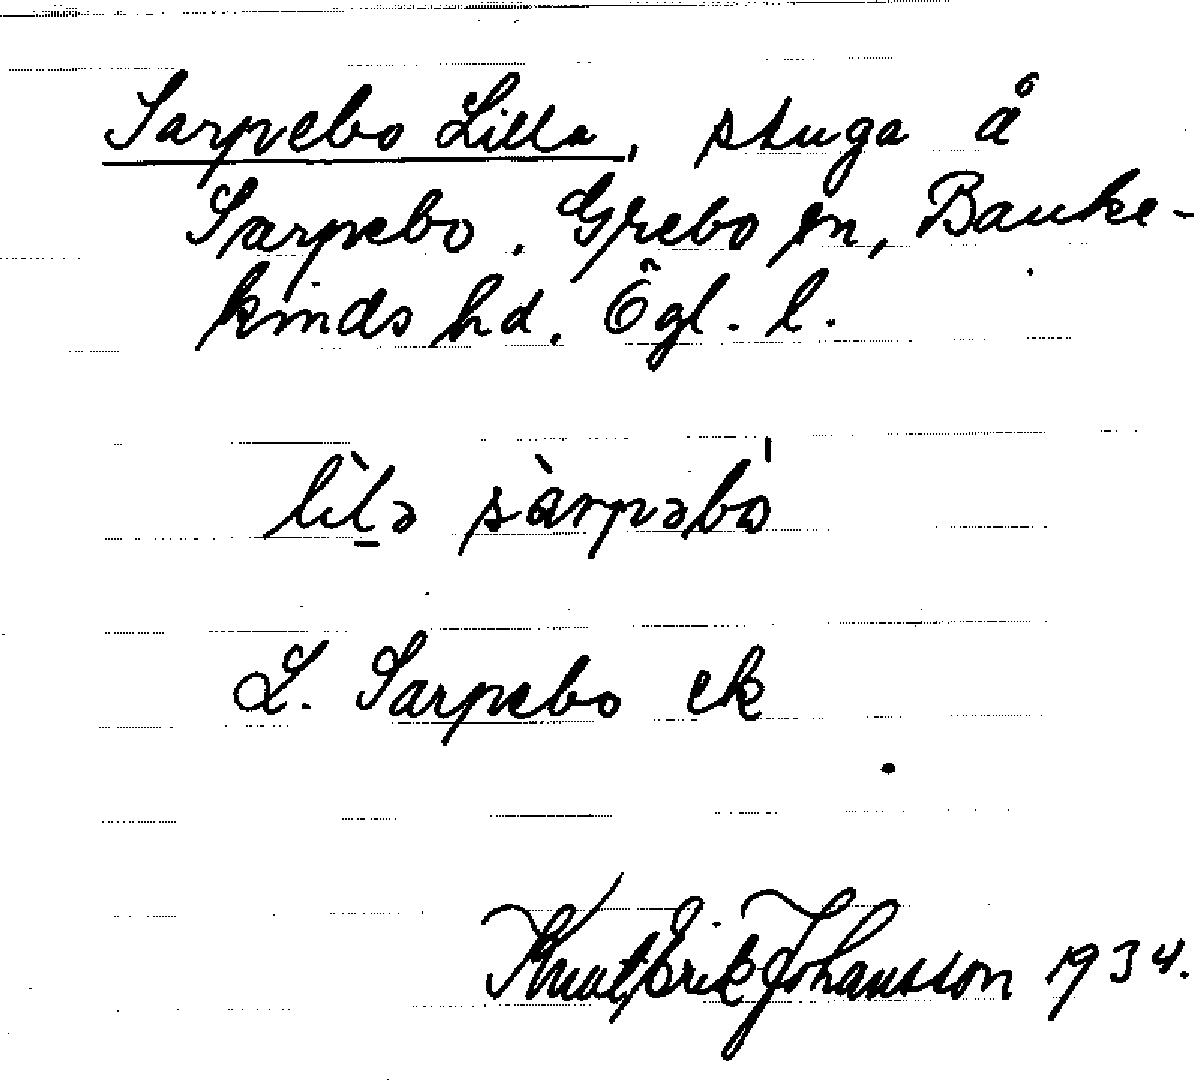 Sarpebo Lilla, stuga å
Sarpebo. Grebo sn, Banke-
kinds hd. Ögl. l.
lìlə sàrpəbo
L. Sarpebo ek
Knut Erik Johansson 1934.